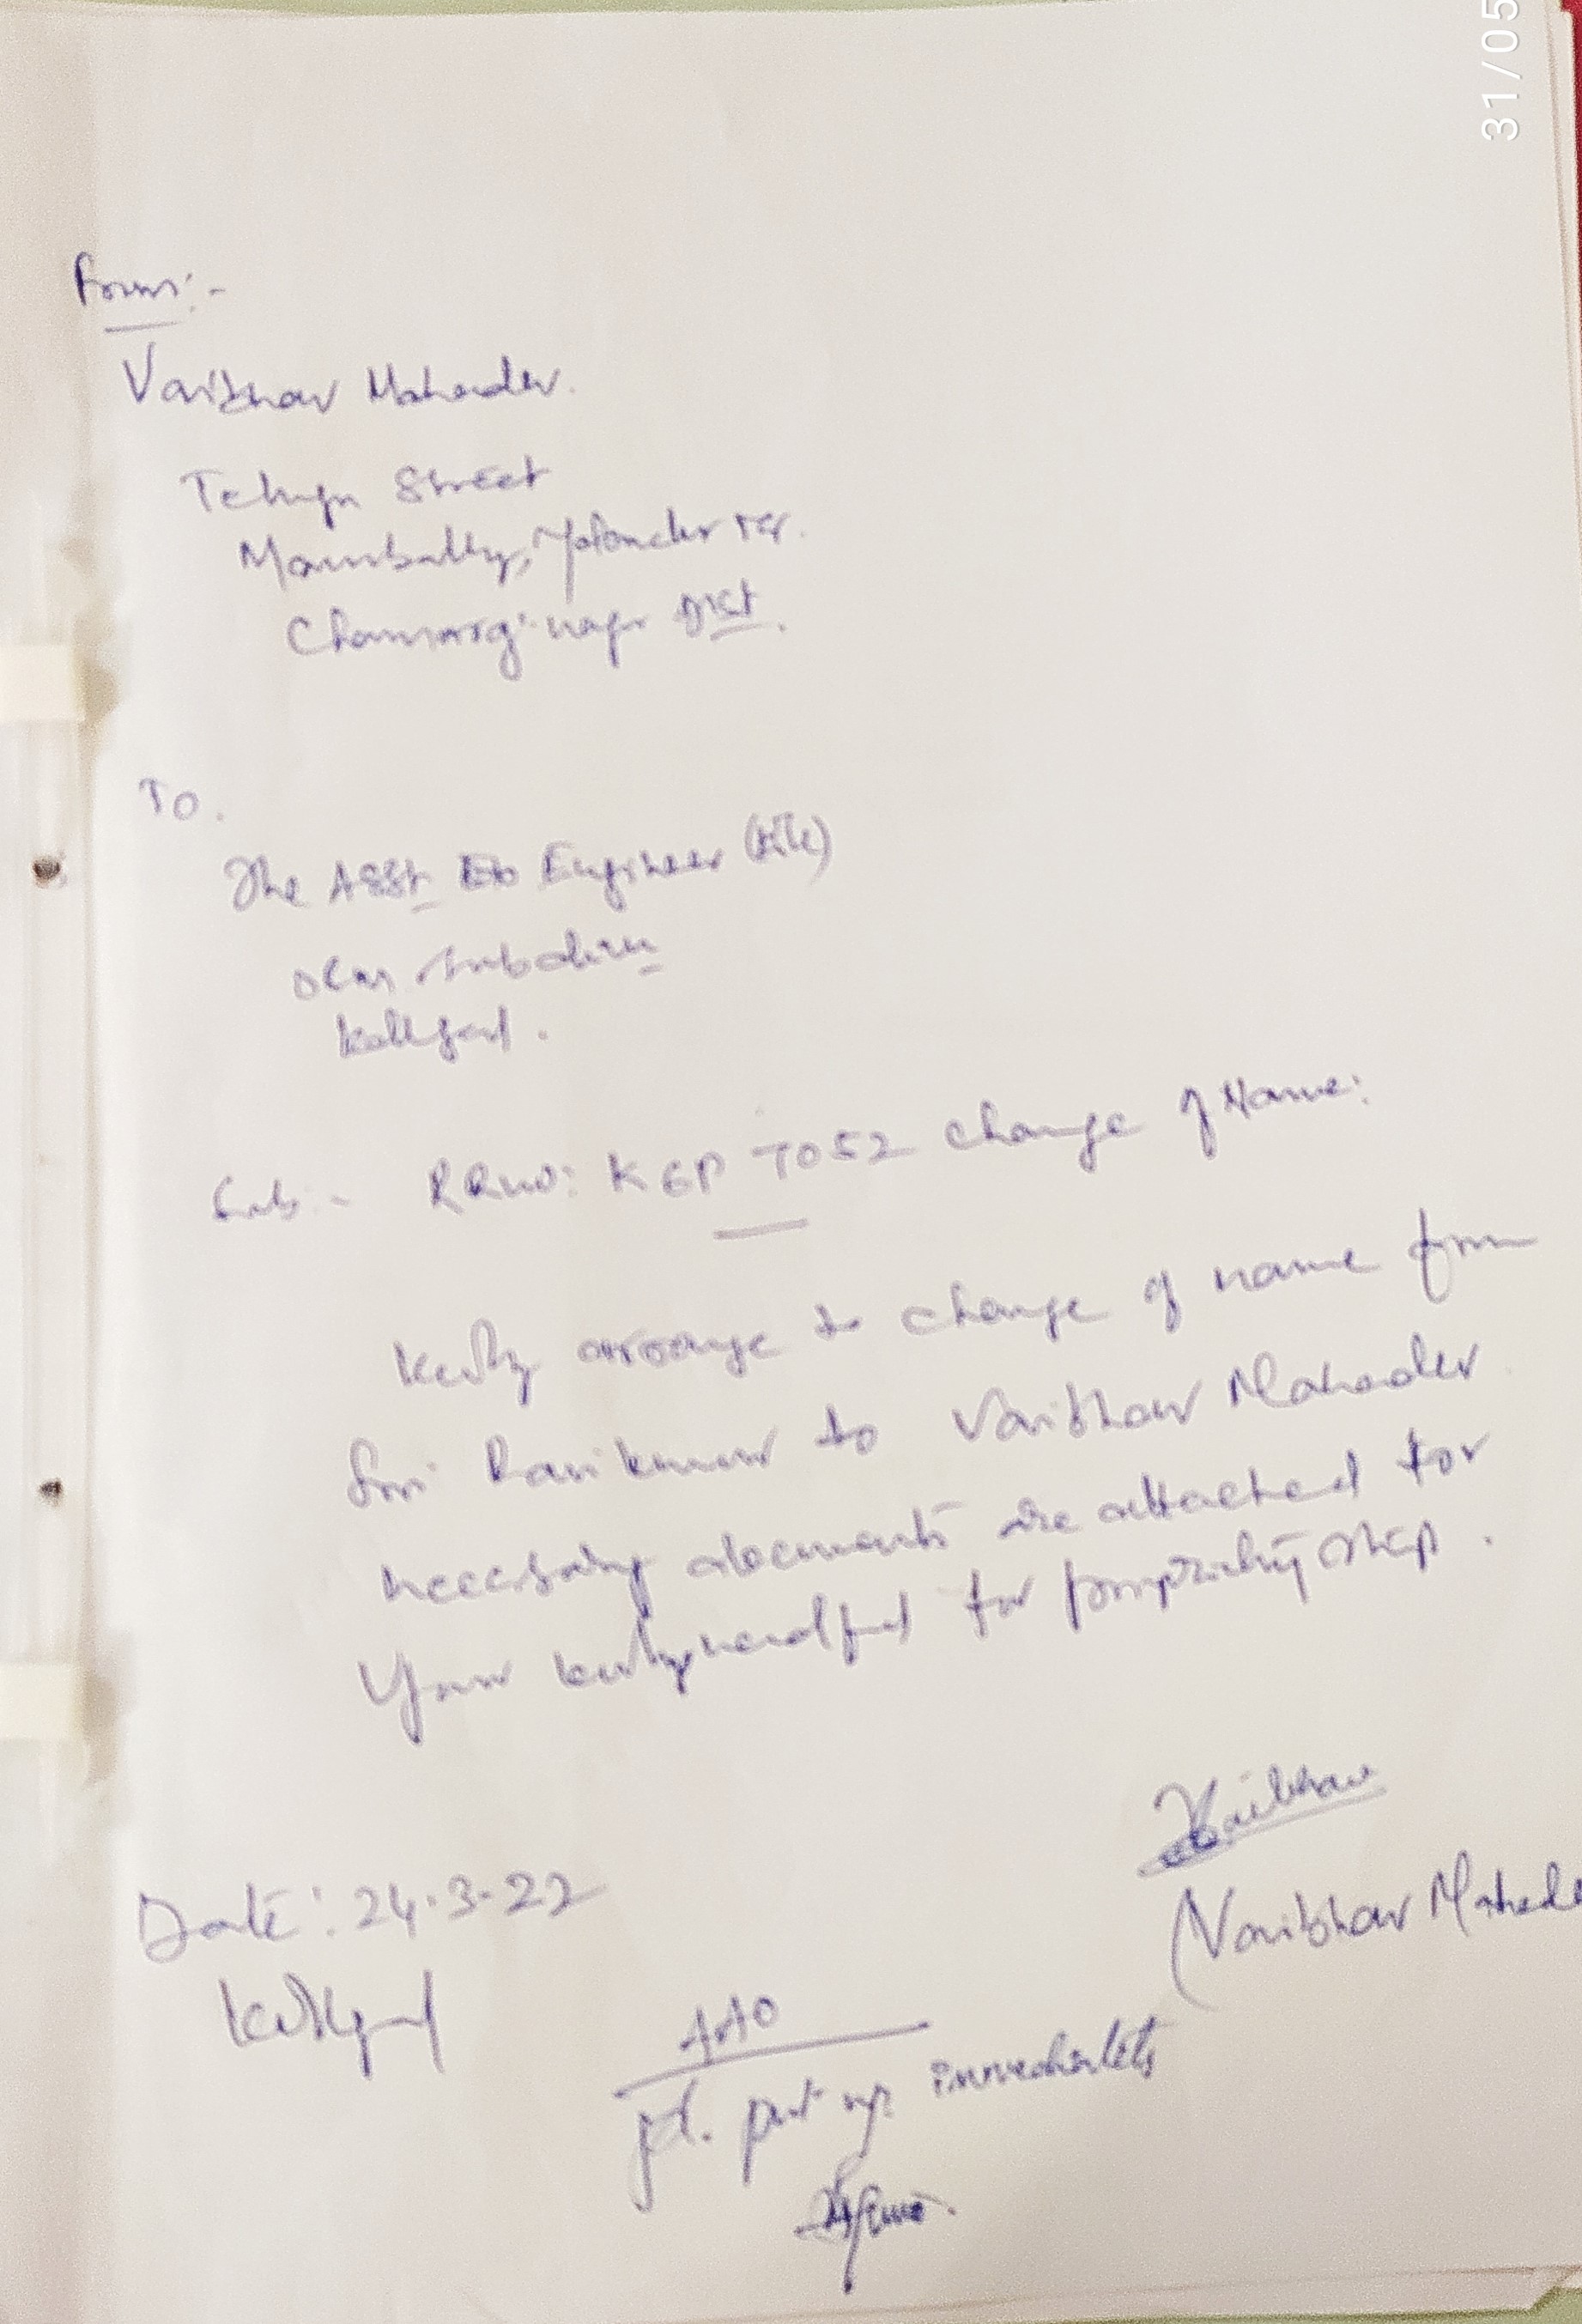 31/05
From:-
Vaibhav Mahadev.
Telugu Street
Mamballi, Yalandur TQ.
Chamaraj nagr Dist.
To.
The Asst Ex Engineer (Ele)
O&M Subdivn
Kollegal.
Sub:- RRNO: KGP 7052 change of Name:
Kindly arrange to change of name from
Sri Ravikumar to Vaibhav Mahadev
necessary documents are attached for
Your kind for
Date: 24.3.22
Kollegal
Vaibhav
(Vaibhav Mahade
AAO
pl. put up immediately